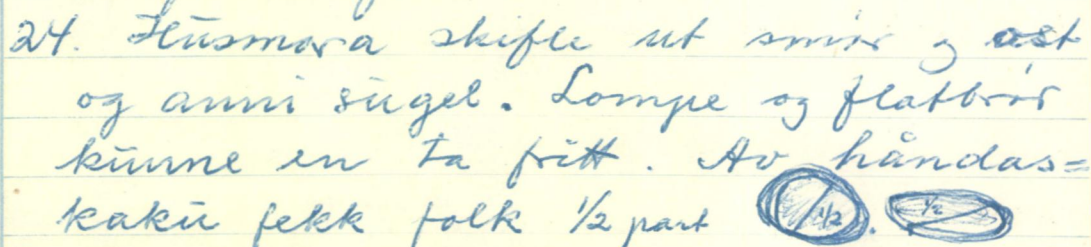 24. Husmora skifle ut smør og ost
og anni sugel. Lompe og flatbrør
kunne en ta fritt. Av håndas=
kaku fekk folk 1/2 part 1/2. 1/2